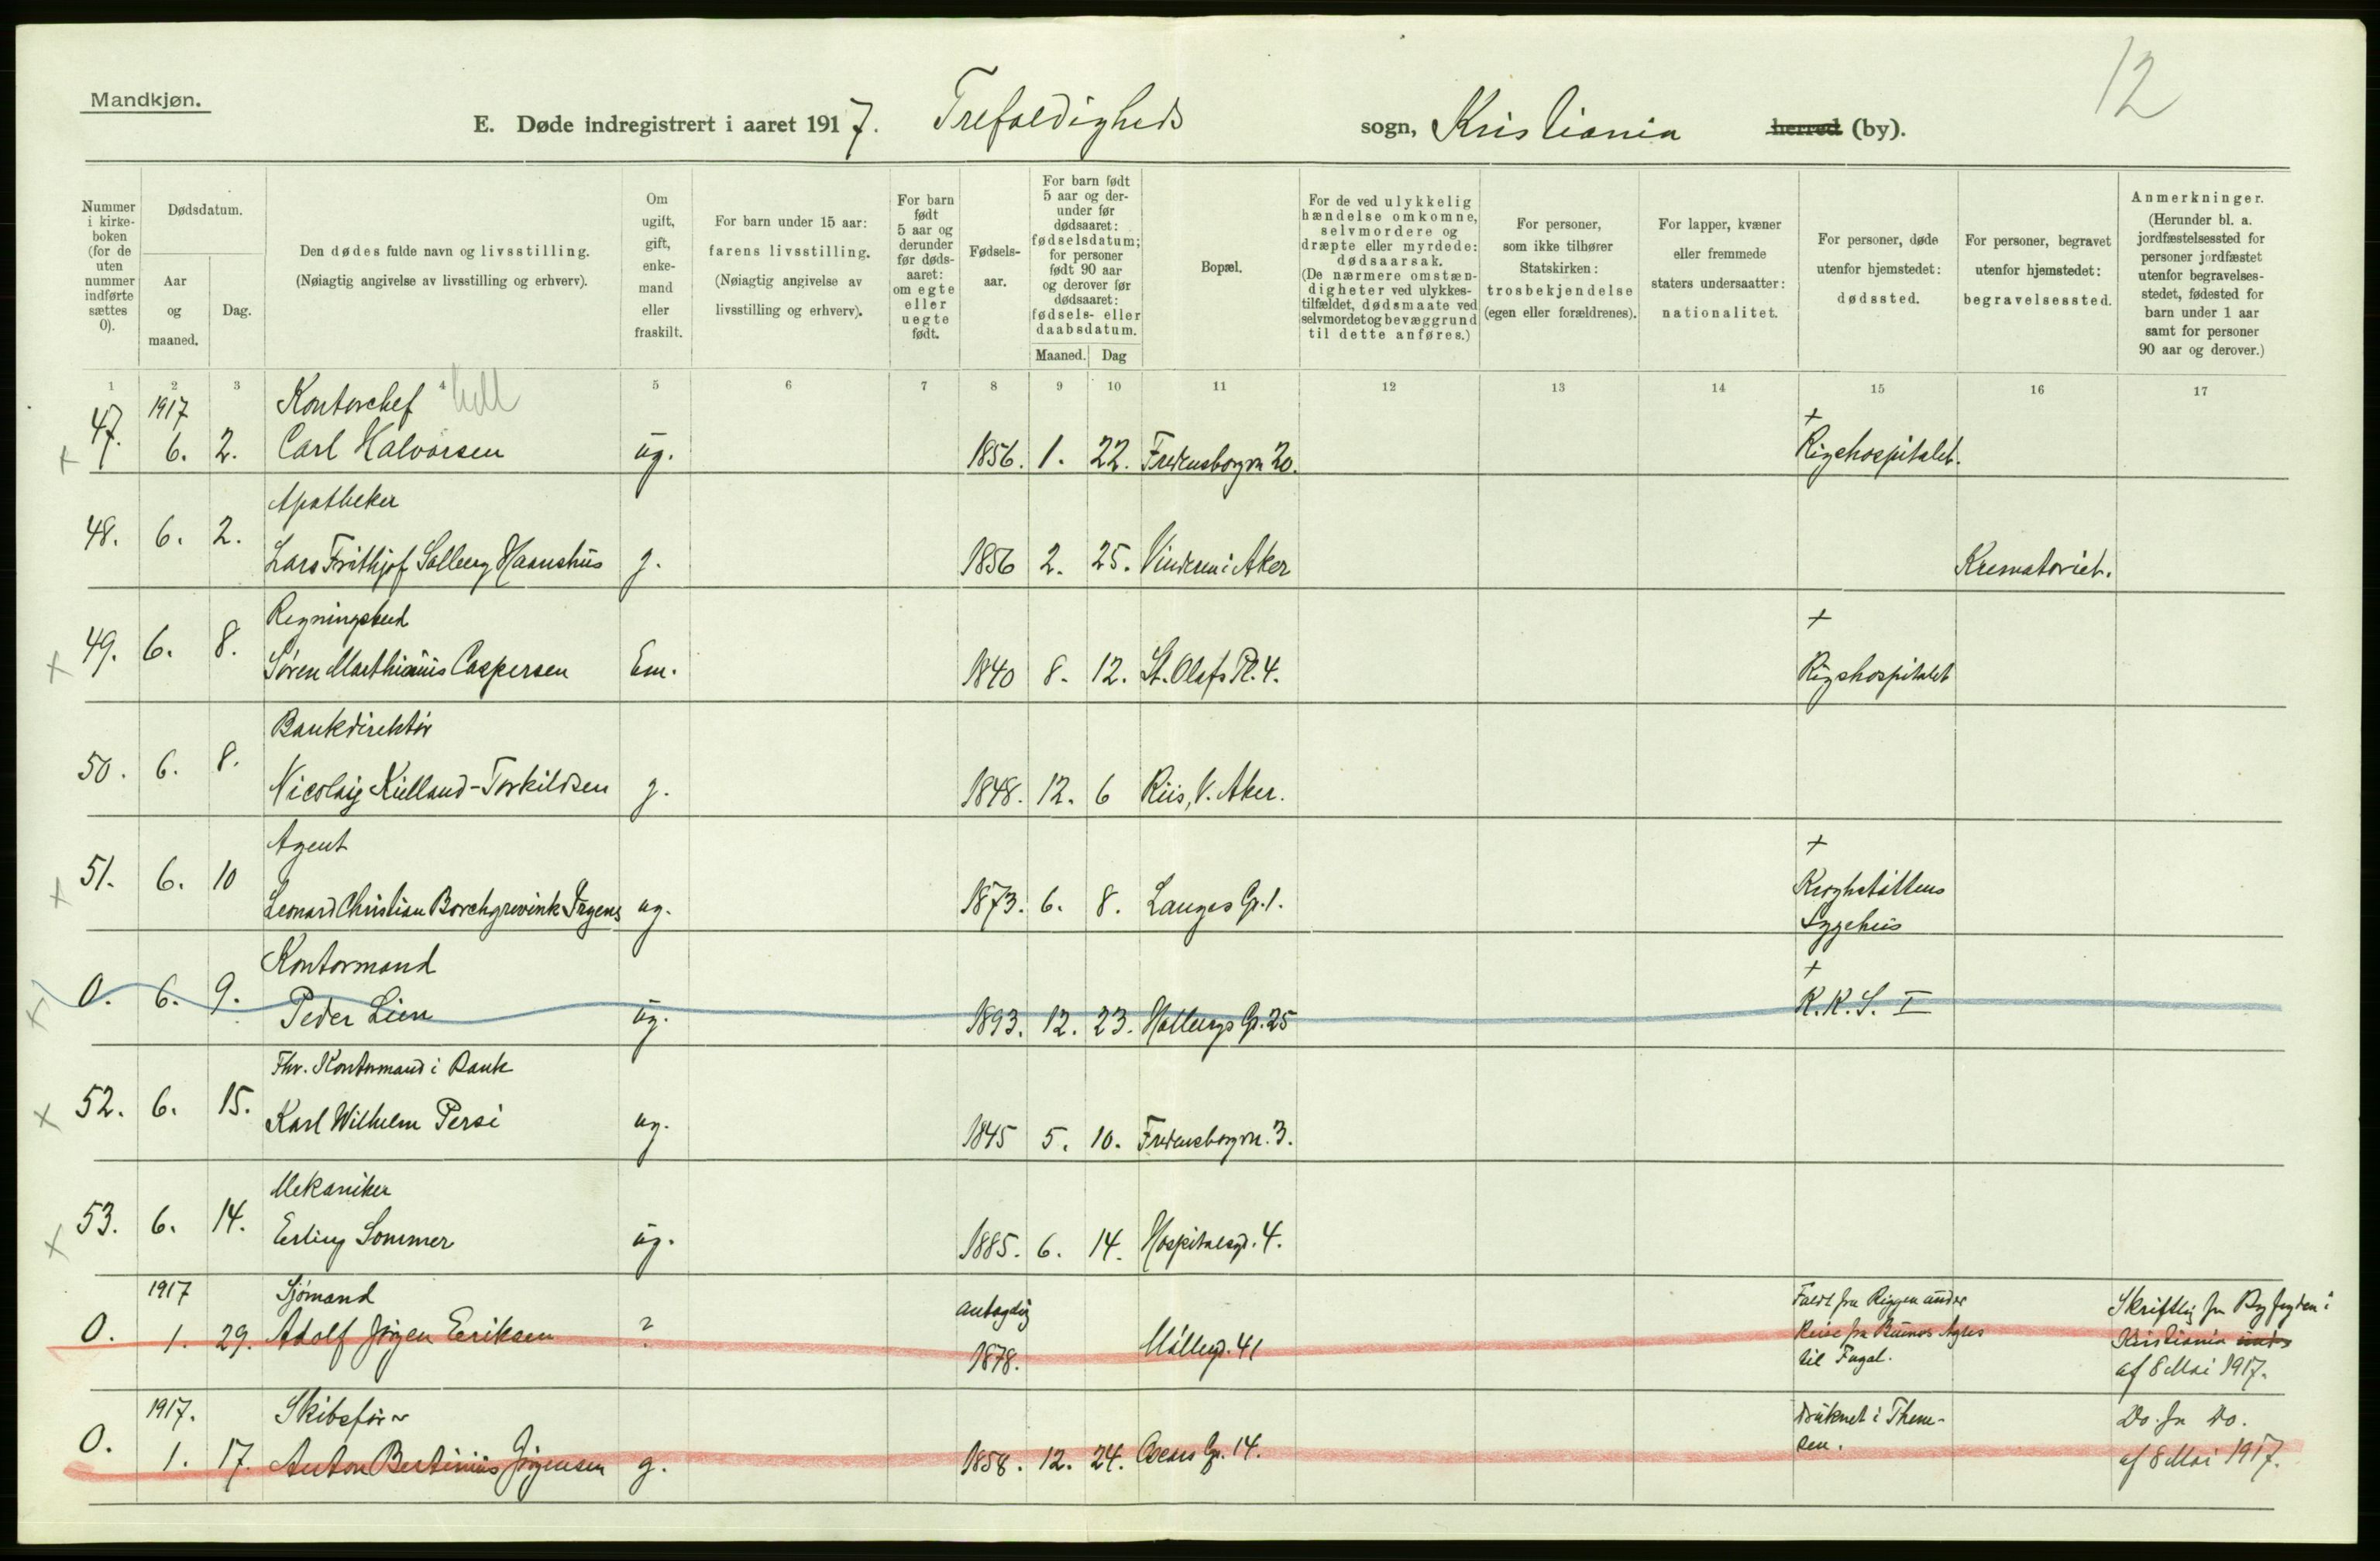 12
Mandkjøn.
E. Døde indregistrert i aaret 1917. Trefoldigheds sogn, Kristiania herred (by).
Nummer i kirke- boken (for de uten nummer indførte sættes 0).
Dødsdatum.
Aar og maaned.
Dag.
Den dødes fulde navn og livsstilling.
(Nøiagtig angivelse av livsstilling og erhverv).
Om ugift, gift, enke- mand eller fraskilt.
For barn under 15 aar: farens livsstilling. (Nøiagtig angivelse av livsstilling og erhverv).
For barn født 5 aar og derunder før døds- aaret: om egte eller uegte født.
Fødsels- aar.
For barn født 5 aar og der- under før dødsaaret: fødselsdatum; for personer født 90 aar og derover før dødsaaret: fødsels- eller daabsdatum.
Maaned. Dag
Bopæl.
For de ved ulykkelig hændelse omkomne, selvmordere og dræpte eller myrdede: dødsaarsak. (De nærmere omstæn- digheter ved ulykkes- tilfældet, dødsmaate ved selvmordet og bevæggrund til dette anføres.)
For personer, som ikke tilhører Statskirken: trosbekjendelse (egen eller forældrenes).
For lapper, kvæner eller fremmede staters undersaatter: nationalitet.
For personer, døde utenfor hjemstedet: dødssted.
For personer, begravet utenfor hjemstedet: begravelsessted.
Anmerkninger. (Herunder bl. a. jordfæstelsessted for personer jordfæstet utenfor begravelses- stedet, fødested for barn under 1 aar samt for personer 90 aar og derover.)
1 2 3 4 5 6 7 8 9 10 11 12 13 14 15 16 17
1917 Kontorchef +
+ 47. 6. 2. Carl Halvorsen ug. 1856. 1. 22. Fredensborgvn 20. Rigshospitalet.
Apotheker
48. 6. 2. Lars Frithjof Solberg Haanshus g. 1856 2. 25. Vinderen i Aker Krematoriet.
Regningsbud +
+ 49. 6. 8. Søren Marthinius Caspersen Em. 1840 8. 12. St. Olafs Pl. 4. Rigshospitalet
Bankdirektør
50. 6. 8. Nicolaij Kielland-Torkildsen g. 1848. 12. 6 Riis, V. Aker.
Agent +
+ 51. 6. 10 Leonard Christian Borchgrevink Irgens ug. 1873. 6. 8. Langes G. 1. Kroghstøttens
Sygehus
Kontormand +
+ 0. 6. 9. Peder Lien ug. 1893. 12. 23. Holbergs G. 25 K.K.S. I
Fhv. Kontormand i Bank
+ 52. 6. 15. Karl Wilhelm Persi ug. 1845 5. 10. Fredensborgvn. 3.
Mekaniker
+ 53. 6. 14. Erling Sommer ug. 1885. 6. 14. Hospitalsgd. 4.
1917 Sjømand antagelig Faldt fra Riggen under Skriftlig fra Byfogden i
0. 1. 29. Adolf Jørgen Eriksen ? 1878. Møllergd. 41 Reise fra Buenos Ayres Kristiania
til af 8 Mai 1917.
1917. Skibsfører Druknet i Them- Do. fra Do.
0. 1. 17. Anton Bertinius Jørgensen g. 1858. 12. 24. Oscars G. 14. sen. af 8 Mai 1917.